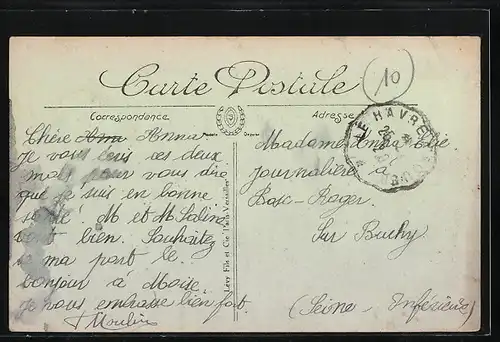 Carte Postale
10
Correspondance
Adresse
Modèle Déposé
Chère Anna
Je vous écris ces deux
mots pour vous dire
que je suis en bonne
santé. M et M
vont bien. Souhaitez
de ma part le
bonjour à
Je vous embrasse bien fort.
Moulin
Lévy Fils et Cie
Madame Anna
journalière à
Bosc-Roger
Sur Buchy
(Seine-Inférieure)
LE HAVRE